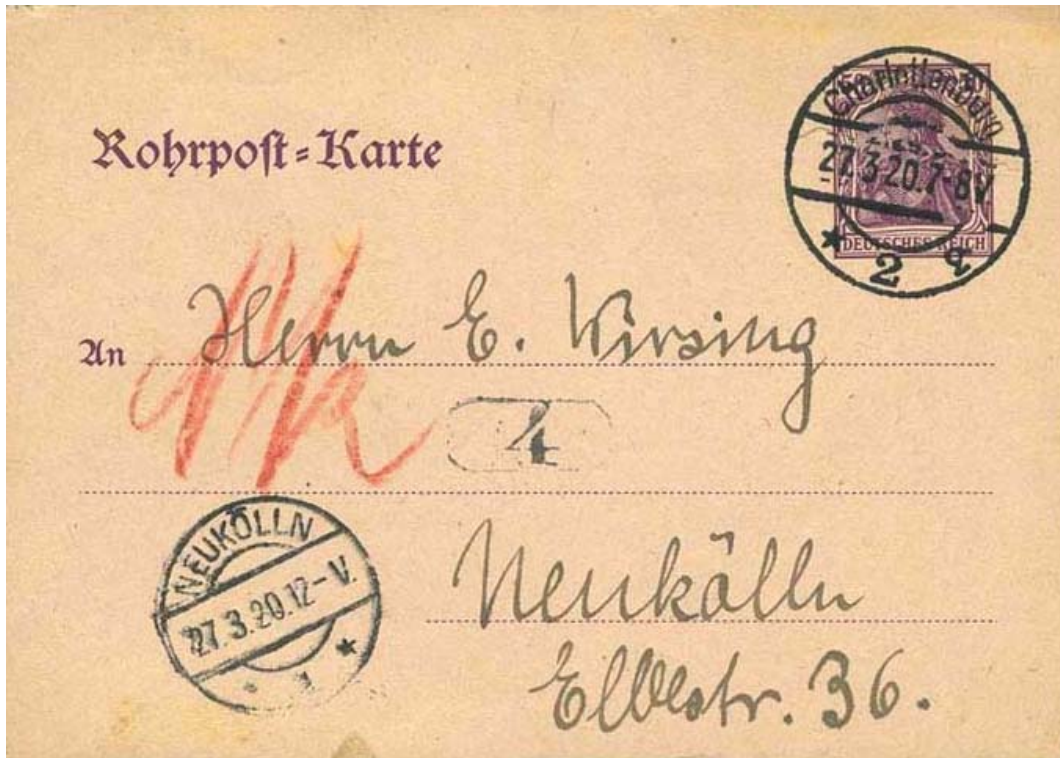 Rohrpost=Karte
Charlottenburg
27.3.20.7-8V
* 2 e
DEUTSCHES REICH
An Herrn E. Wirsing
4
NEUKÖLLN
27.3.20.12-V.
* 1 *
Neukölln
Elbestr. 36.